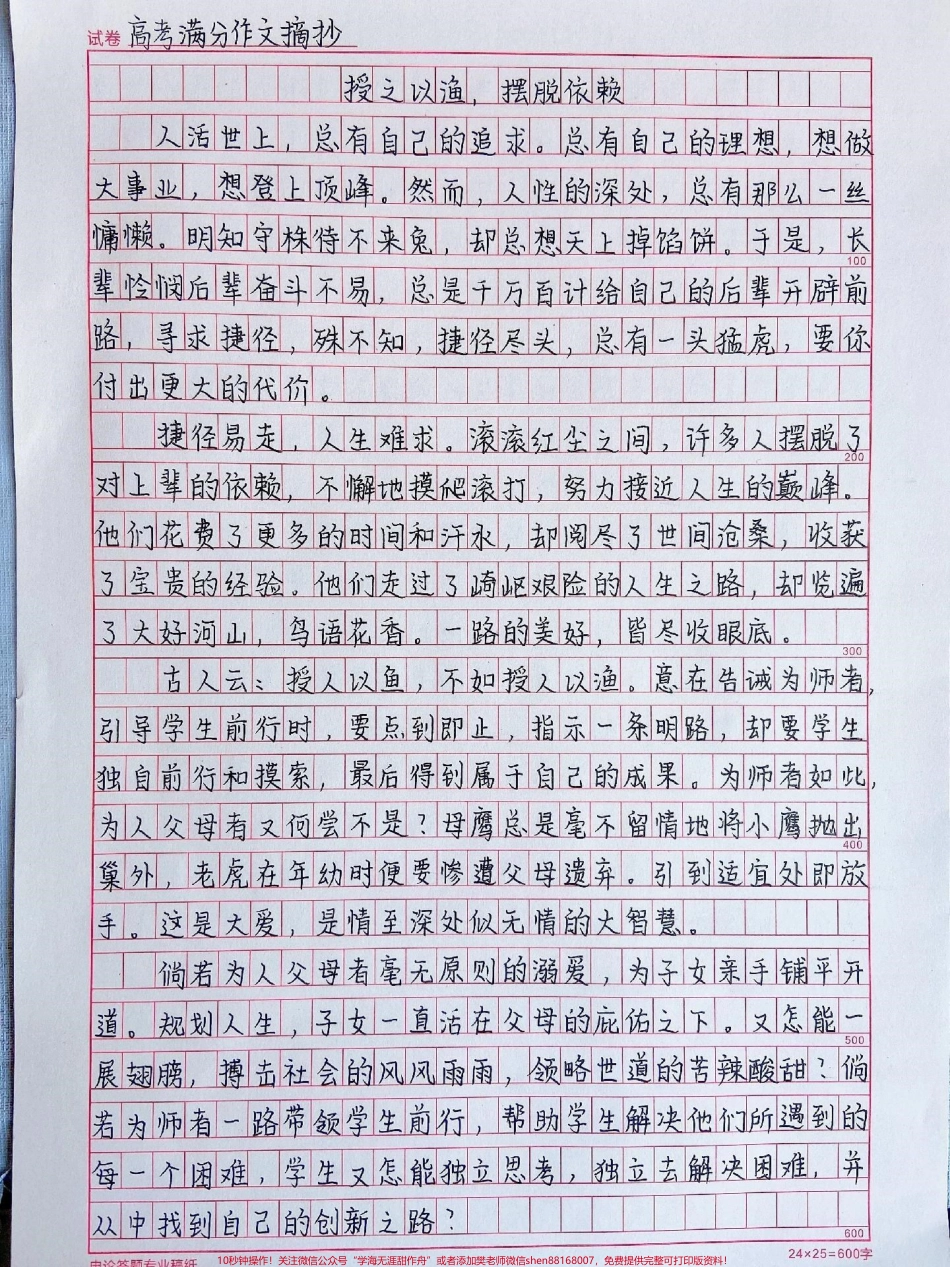 试卷 高考满分作文摘抄
授之以渔，摆脱依赖
人活世上，总有自己的追求。总有自己的理想，想做
大事业，想登上顶峰。然而，人性的深处，总有那么一丝
慵懒。明知守株待不来兔，却总想天上掉馅饼。于是，长
100
辈怜悯后辈奋斗不易，总是千方百计给自己的后辈开辟前
路，寻求捷径，殊不知，捷径尽头，总有一头猛虎，要你
付出更大的代价。
捷径易走，人生难求。滚滚红尘之间，许多人摆脱了
200
对上辈的依赖，不懈地摸爬滚打，努力接近人生的巅峰。
他们花费了更多的时间和汗水，却阅尽了世间沧桑，收获
了宝贵的经验。他们走过了崎岖艰险的人生之路，却览遍
了大好河山，鸟语花香。一路的美好，皆尽收眼底。
300
古人云：授人以鱼，不如授人以渔。意在告诫为师者，
引导学生前行时，要点到即止，指示一条明路，却要学生
独自前行和摸索，最后得到属于自己的成果。为师者如此，
为人父母者又何尝不是？母鹰总是毫不留情地将小鹰抛出
400
巢外，老虎在年幼时便要惨遭父母遗弃。引到适宜处即放
手。这是大爱，是情至深处似无情的大智慧。
倘若为人父母者毫无原则的溺爱，为子女亲手铺平开
道。规划人生，子女一直活在父母的庇佑之下。又怎能一
500
展翅膀，搏击社会的风风雨雨，领略世道的苦辣酸甜？倘
若为师者一路带领学生前行，帮助学生解决他们所遇到的
每一个困难，学生又怎能独立思考，独立去解决困难，并
从中找到自己的创新之路？
600
申论答题专业稿纸 10秒钟操作！关注微信公众号“学海无涯甜作舟”或者添加樊老师微信shen88168007，免费提供完整可打印版资料！ 24×25=600字